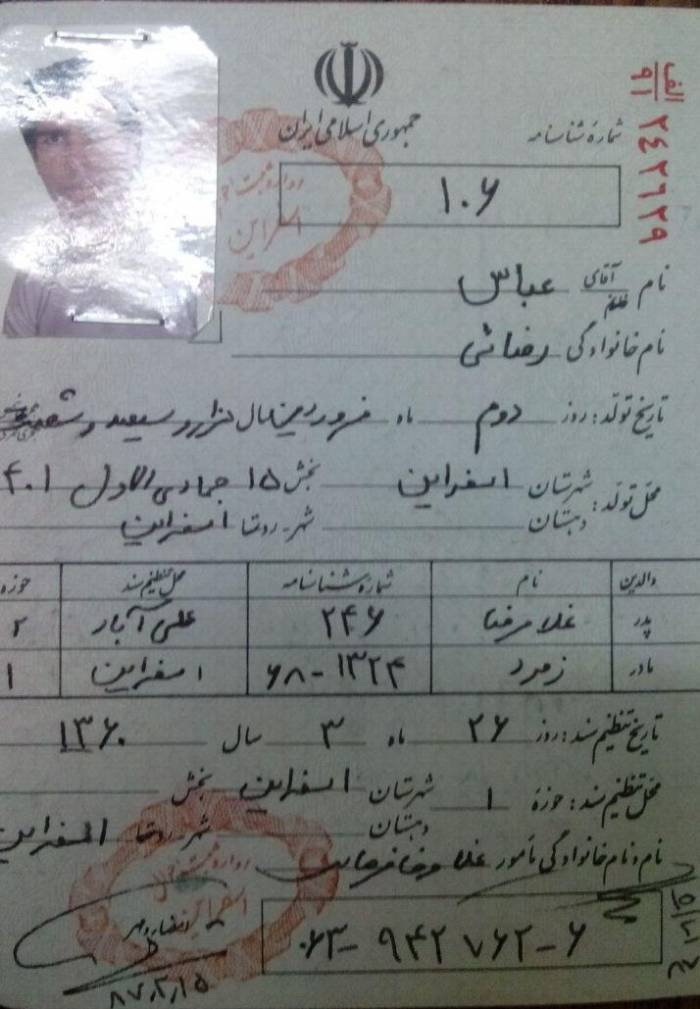 جمهوری اسلامی ایران
الف ۹۱ ۲۴۲۶۲۹
شمارهٔ شناسنامه
۱۰۶
نام آقای خانم عباس
نام خانوادگی رضائی
تاریخ تولد: روز دوم ماه فروردین سال هزار و سیصد و شصت
محل تولد: شهرستان اسفراین بخش ۱۵ جمادی الاول ۴۰۱
دهستان شهر-روستا اسفراین
والدین نام شمارهٔ شناسنامه محل تنظیم سند حوزه
پدر غلامرضا ۲۴۶ علی آباد ۲
مادر زمرد ۶۸-۱۳۲۴ اسفراین ۱
تاریخ تنظیم سند: روز ۲۶ ماه ۳ سال ۱۳۶۰
محل تنظیم سند: حوزهٔ ۱ شهرستان اسفراین بخش
دهستان شهر-روستا اسفراین
نام و نام خانوادگی مأمور غلامرضا
۰۶۳-۹۴۲۷۶۲-۶
۸۷,۲,۱۵